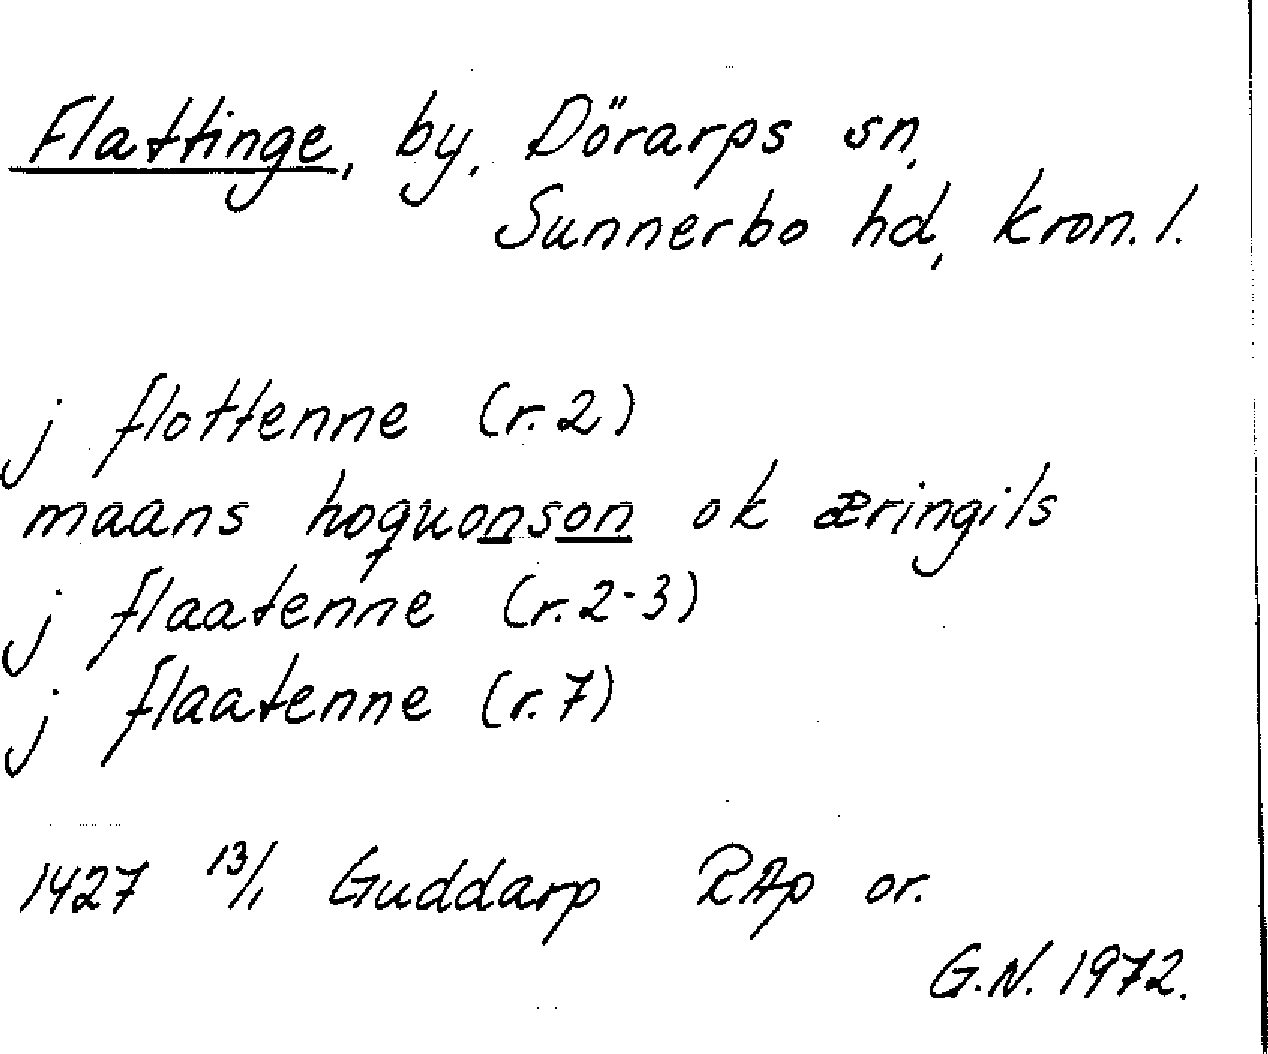 Flattinge, by, Dörarps sn,
Sunnerbo hd, kron. l.
j flottenne (r. 2)
maans hoquonson ok æringils
j flaatenne (r. 2-3)
j flaatenne (r. 7)
1427 13/1 Guddarp RAp or.
G.N. 1972.